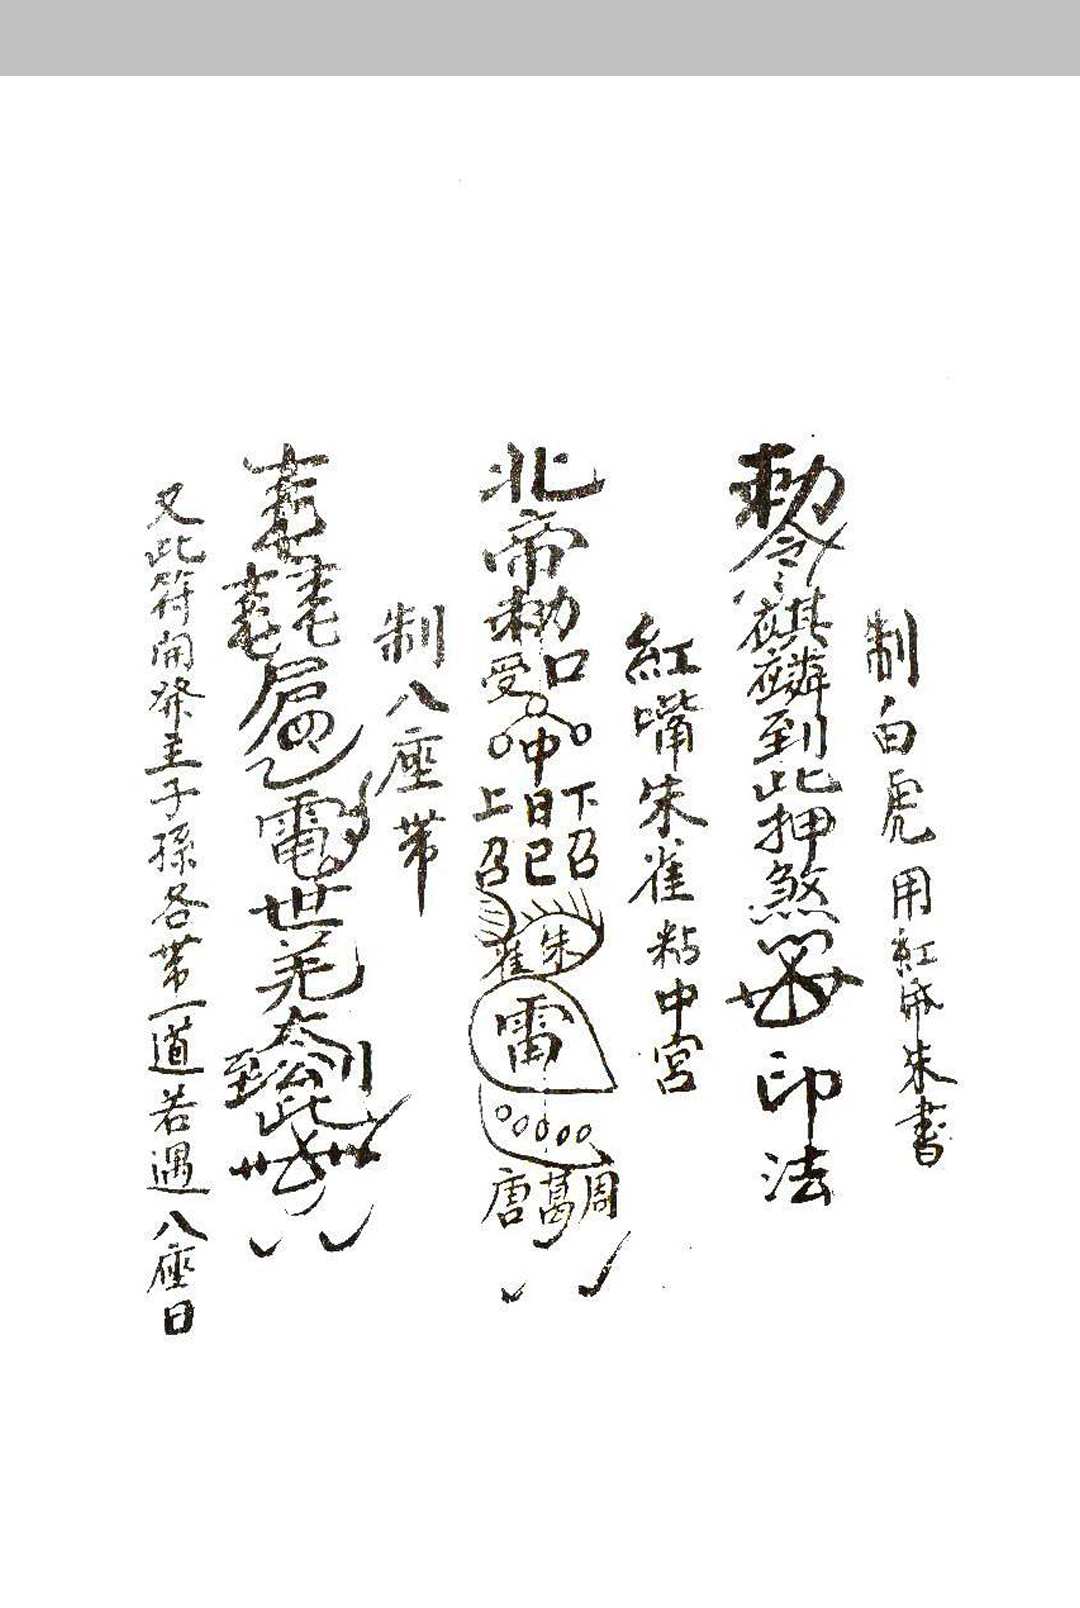 制白虎用紅紙朱書
勅令麒麟到此押煞 印法
紅嘴朱雀粘中宮
北帝勅
受口
中
上日下
召已召
雀朱
雷
唐葛周
制八座帶
電世
到此
又此符開發主子孫各帶一道若遇八座日